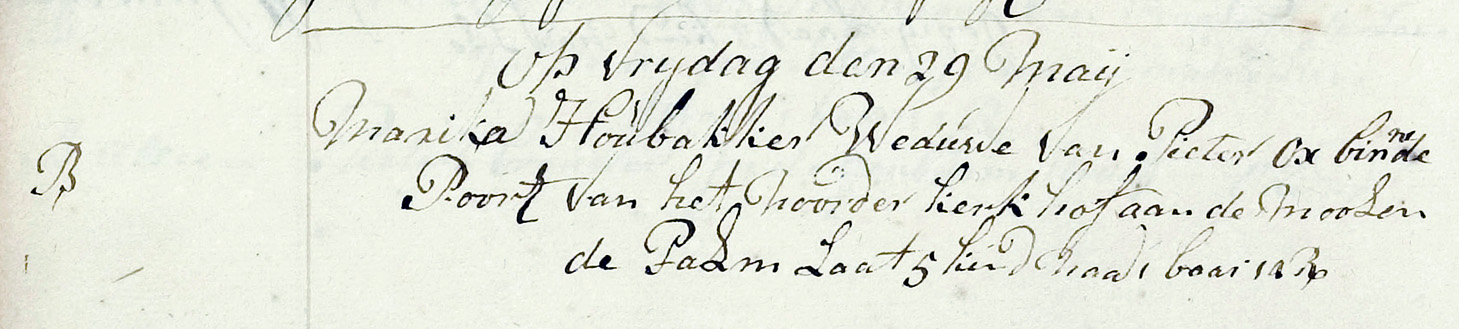 op vrydag den 29 Maij
Marika Houbakker Weduwe van Pieter Ox binne de
B
Poort van het Noorder kerk hof aan de Moolen
de Palm Laat 5 kind